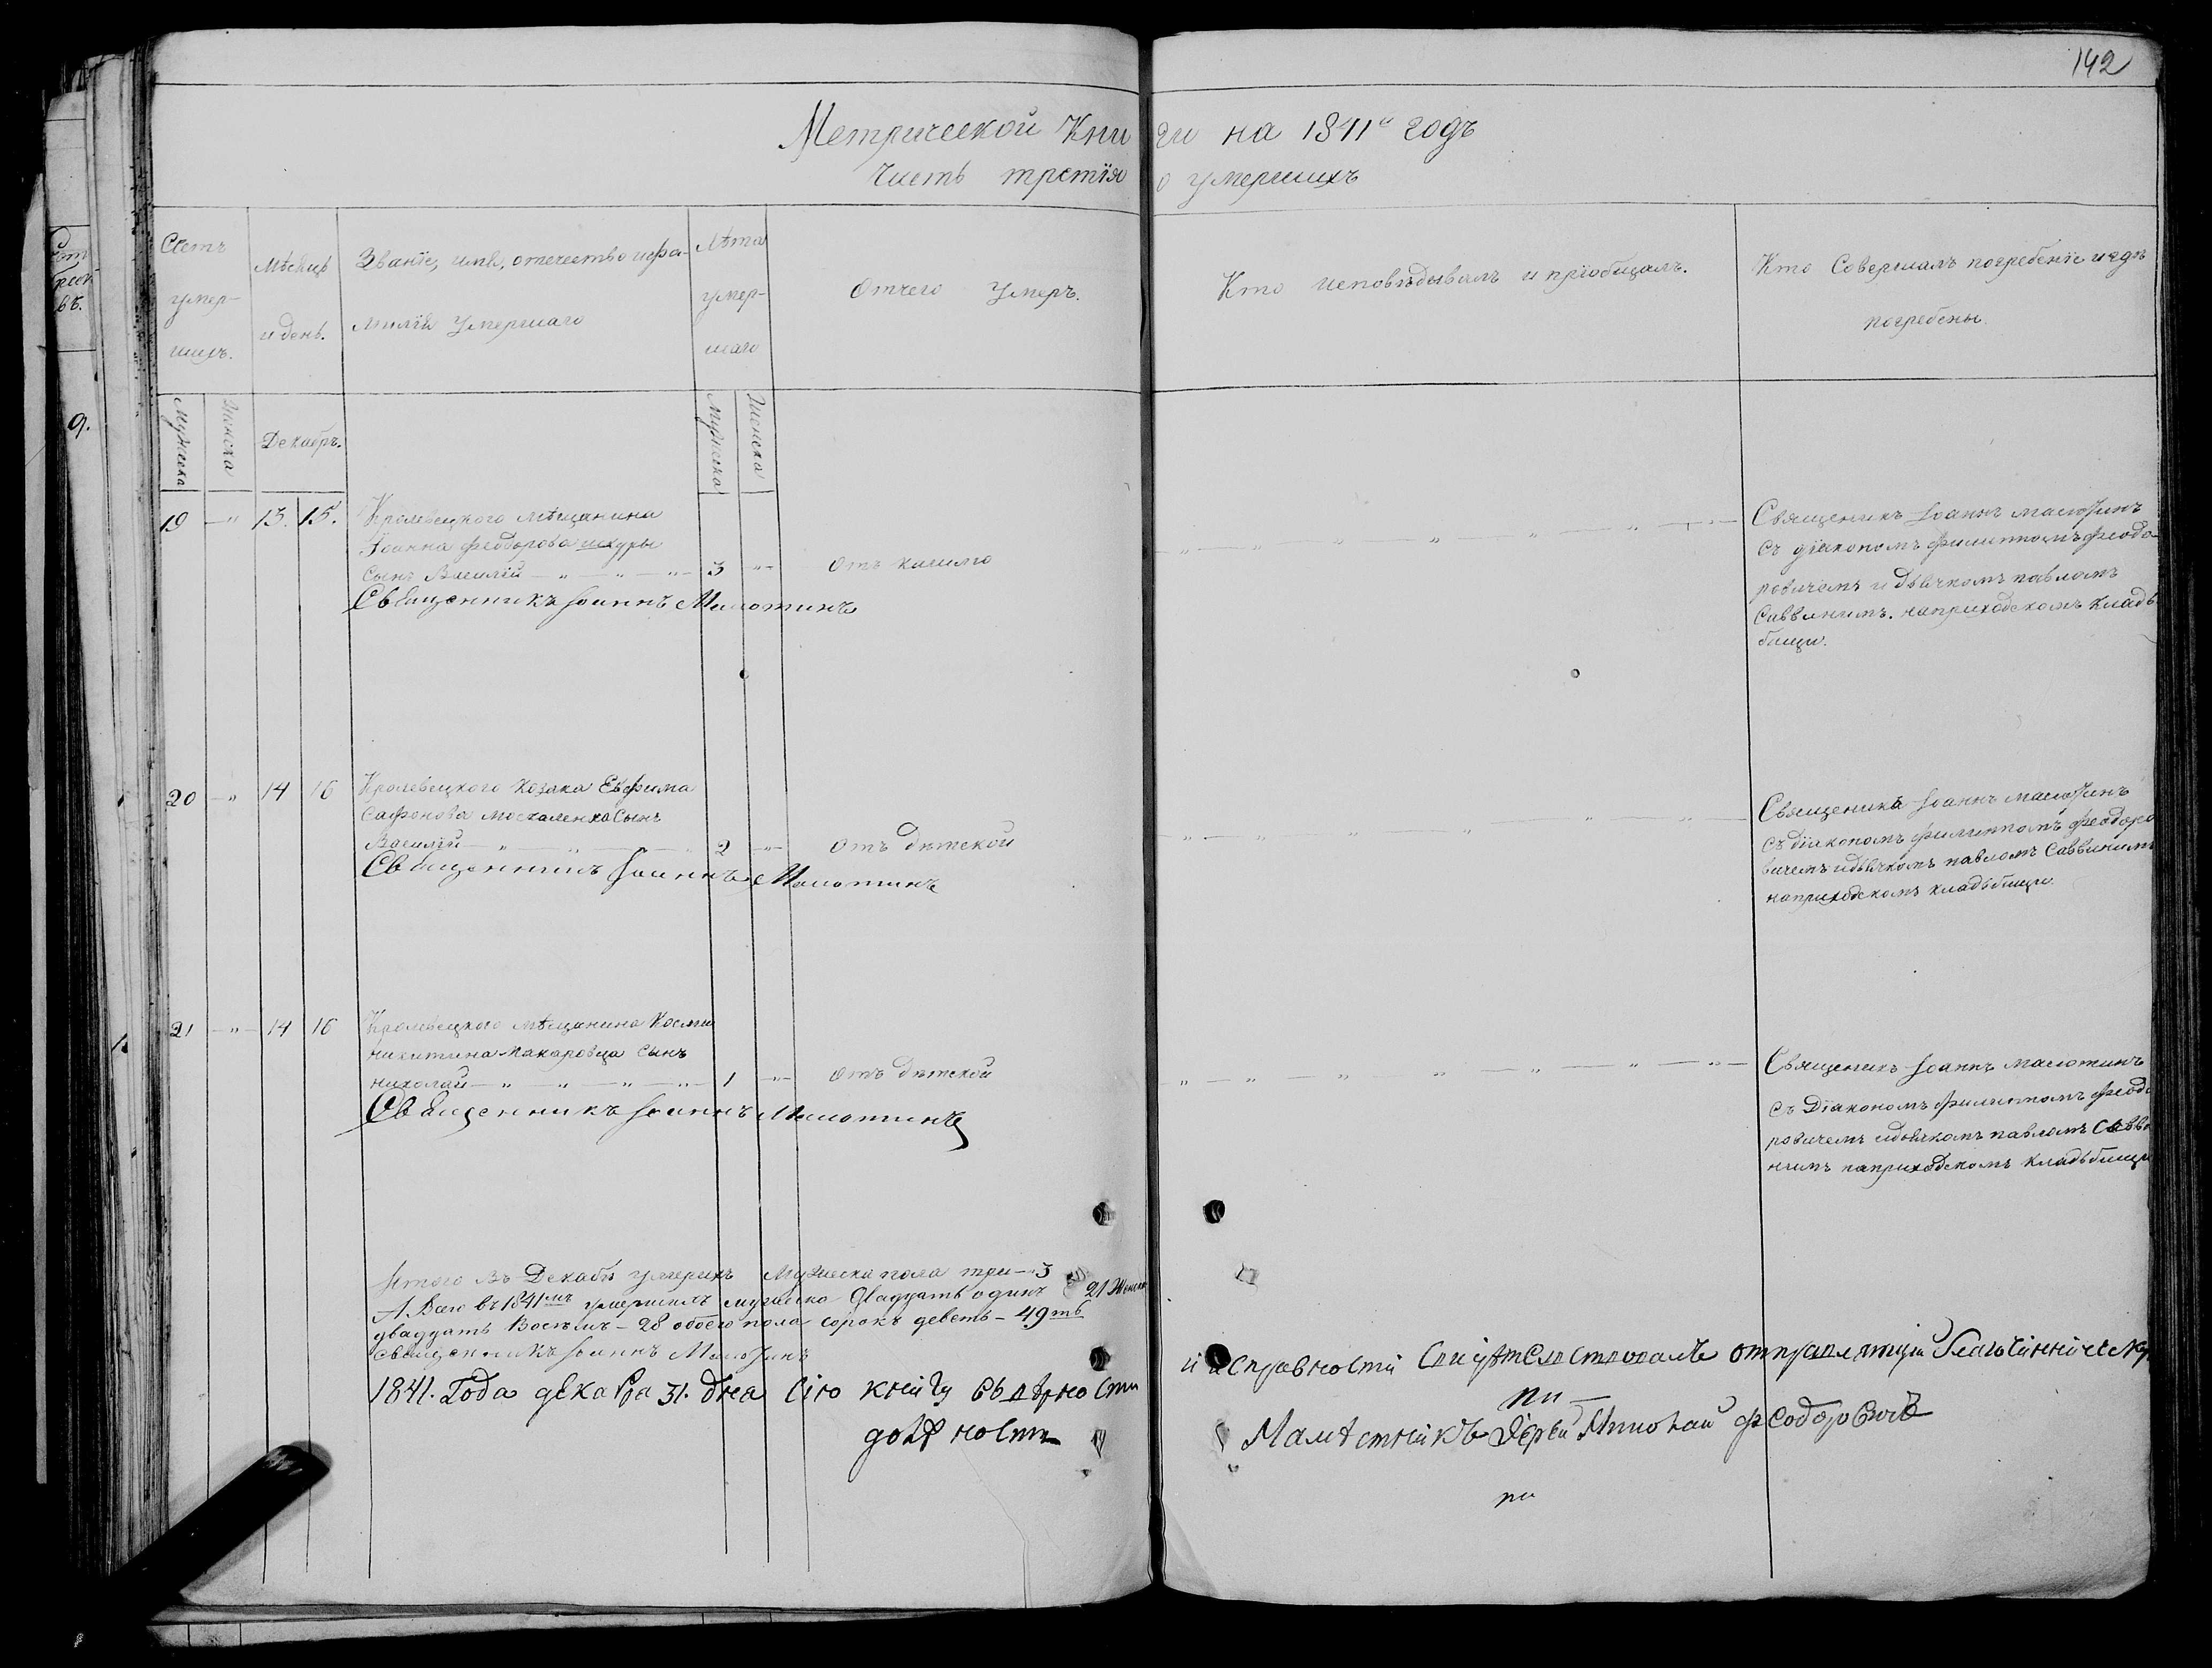 142
Метрической Книги на 1841й годъ
Часть третїя о умершихъ
Счетъ умер-шихъ.
Мѣсяцъ и день.
Званїе, имя, отечество и фа-
милїя умершаго
Лѣта умер-шаго
Отчего умеръ.
Кто исповѣдывалъ и прїобщалъ.
Кто совершалъ погребенїе и гдѣ
погребены.
Мужеска
Женска
Декабрь.
Мужеска
Женска
19 — " 13. 15. Кролевецкого мѣщанина
Іоанна феодорова шкуры
Сынъ Василїй — " — " — " 3 " Отъ кашлю
Священникъ Іоаннъ Малютинъ
Священикъ Іоаннъ малютинъ
съ дїякономъ филиппомъ феодо-
ровичемъ и дьячкомъ павломъ
Саввинимъ. наприходскомъ кладъ
бищи.
20 — " 14 16 Кролевецкого козака Евфима
Сафонова москаленка Сынъ
Василїй — " — " 2 " Отъ дѣтской
Священникъ Іоаннъ Малютинъ
Священикъ Іоаннъ малютинъ
Съ дїякономъ филиппомъ феодоро
вичемъ идьячкомъ павломъ Саввинимъ
наприходскомъ кладъбищи.
21 — " 14 16 Кролевецкого мѣщанина Космы
никитина макаровца сынъ
николай — " — " — " — " 1 " Отъ дѣтской
Священникъ Іоаннъ Малютинъ
Священикъ Іоаннъ малютинъ
съ Дїякономъ филиппомъ феодо
ровичемъ идьячкомъ павломъ Савви
нимъ наприходскомъ кладъбищи
Итого въ Декабрѣ умерихъ Мужеска пола три — 3
А Всего въ 1841мъ умершихъ мужеска двадцать одинъ 21 Женска
двадцать Восемъ — 28 обоего пола сорокъ деветь — 49ть
священникъ Іоаннъ Малютинъ
1841. Года декабра 31. дна сію книгу въ вѣрности и исправности свидѣтелствовалъ отправляющій благочинническу
должность
Намѣстникъ Іерей Николай Феодоровичъ